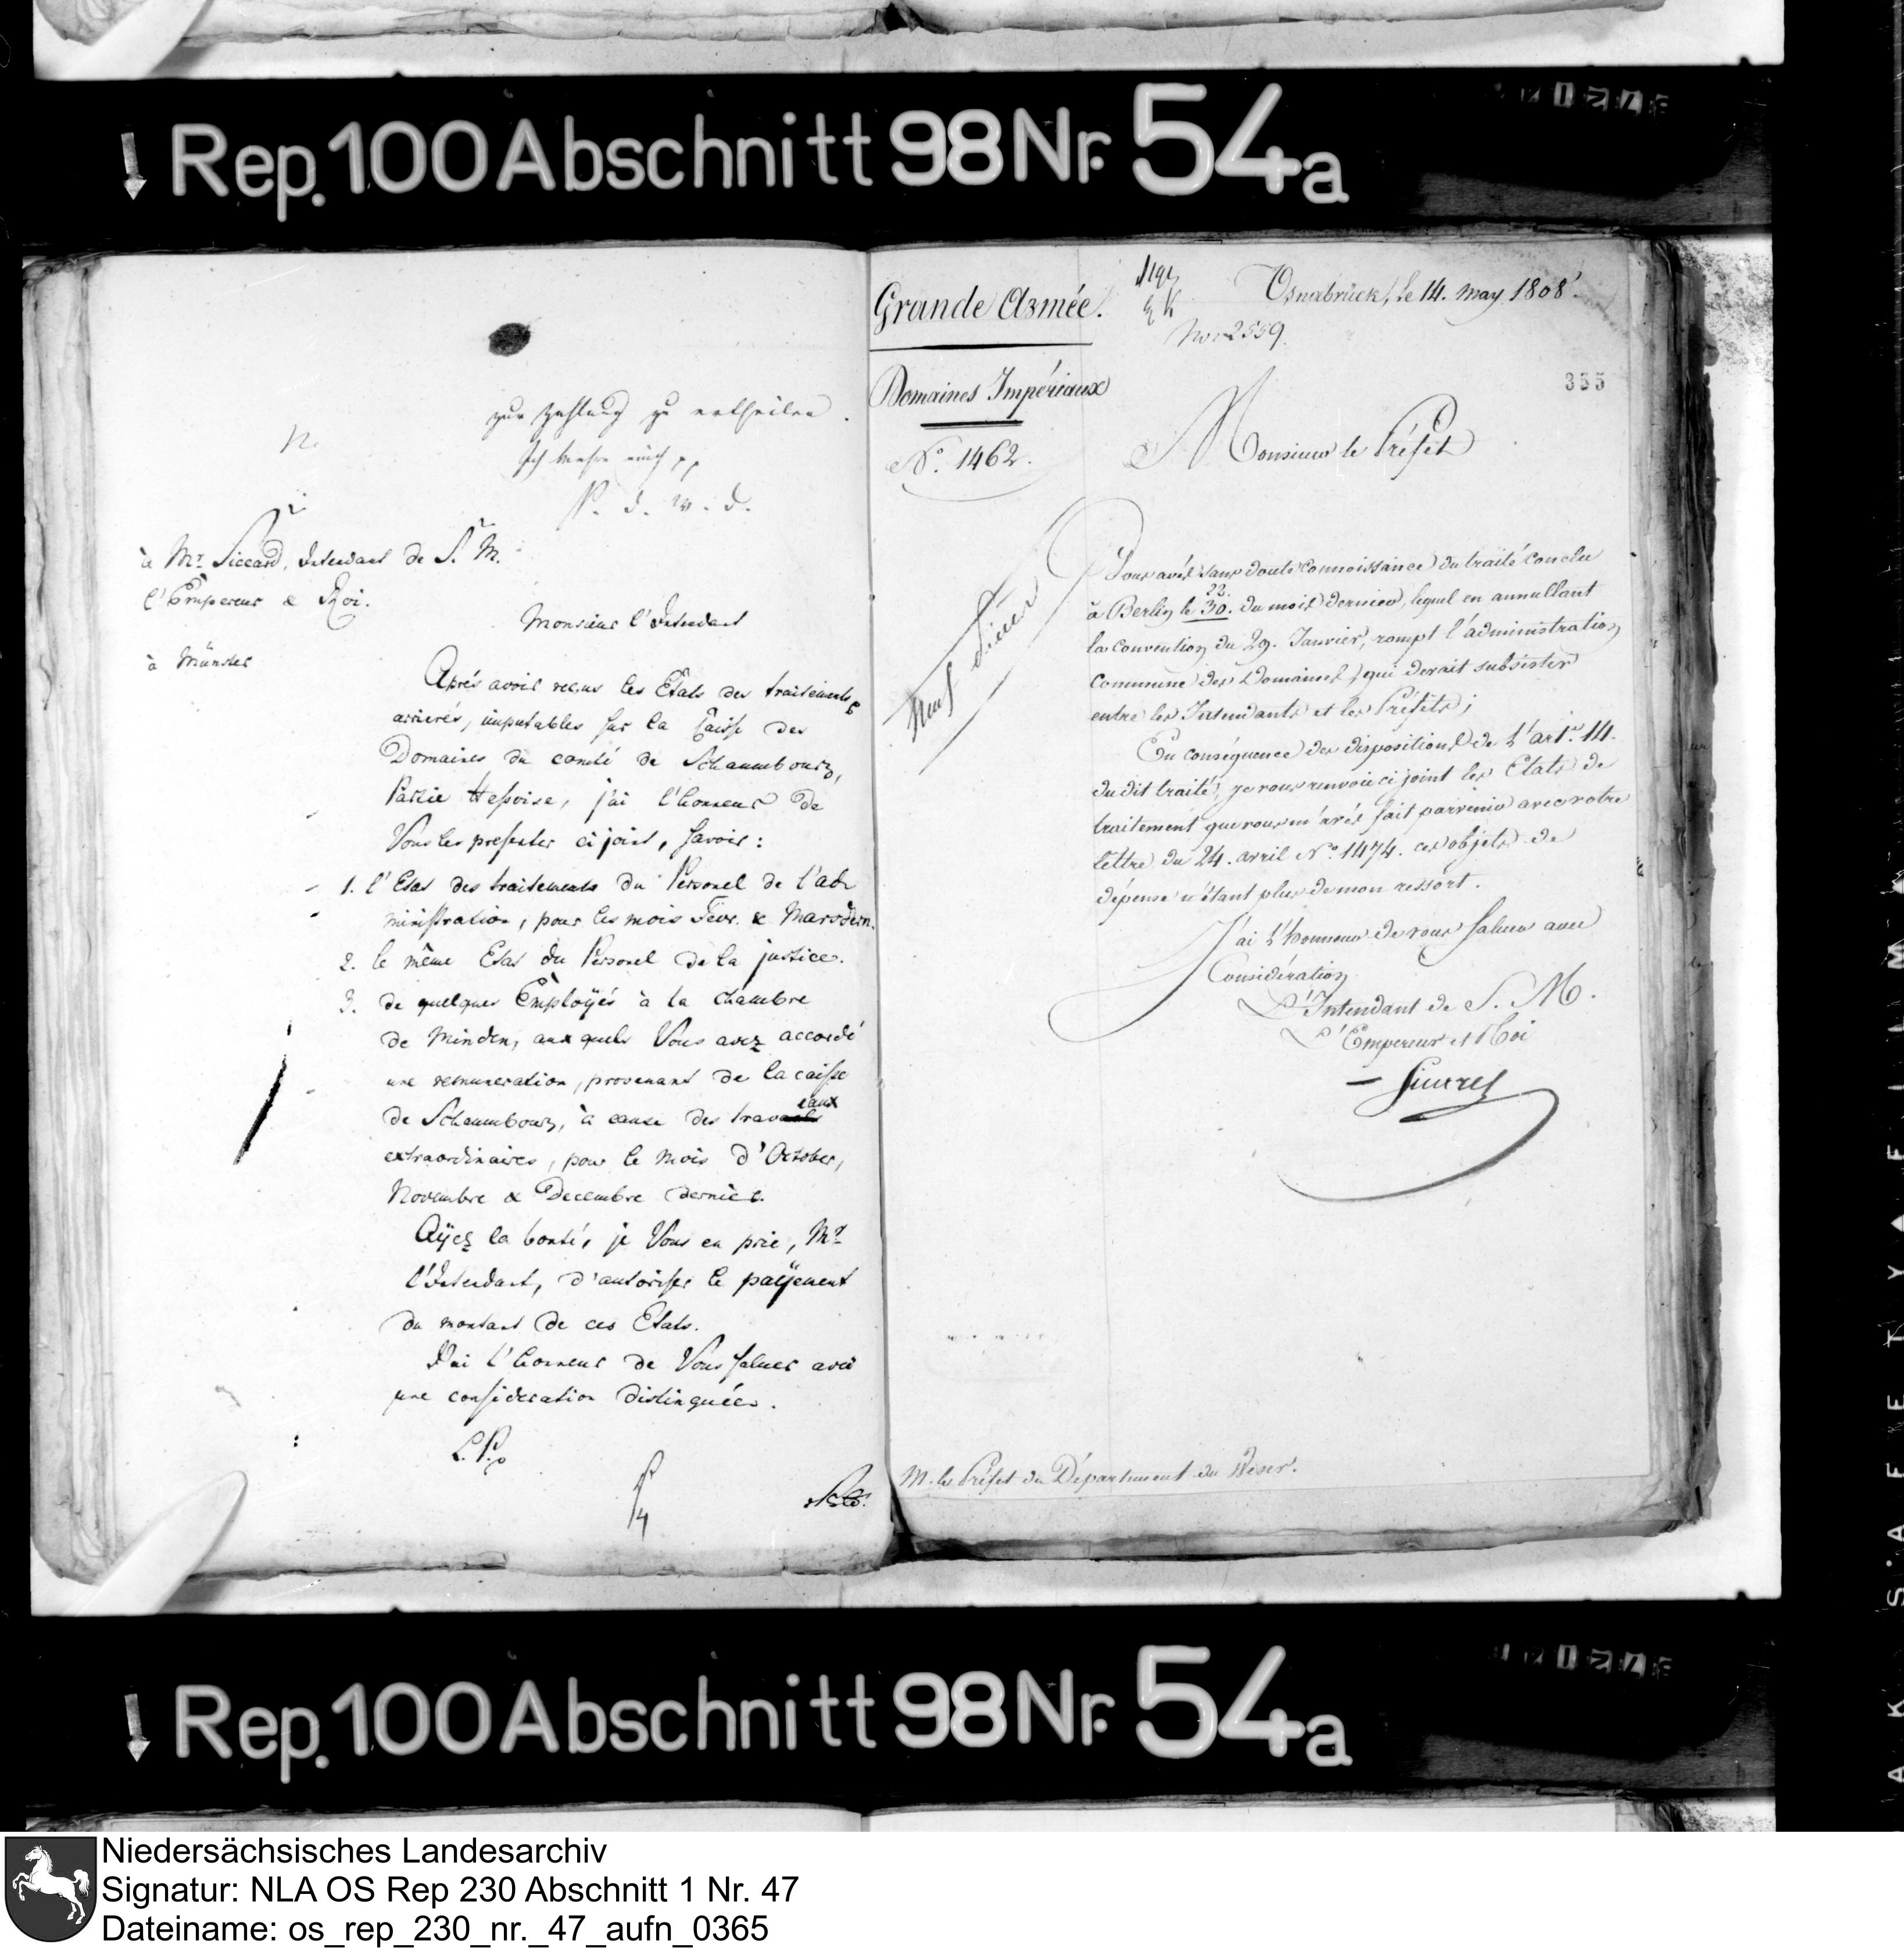 Rep. 100 Abschnitt 98 Nr. 54a
zur Zahlung zu ertheilen.
à Mr. Siccard, Intendant de S. M.
l'Empereur & Roi.
à Münster
Monsieur l'Intendant
Aprés avoir reçus les Etats des traitements
arrierés, imputables sur la Caisse des
Domaines du comté de Schaumbourg,
Partie Hessoise, j'ai l'honneur de
Vous les presenter ci joint, savoir:
1. l'Etat des traitements du Personel de l'ad-
ministration, pour les mois Fevr. & Mars dern.
2. le même Etat du Personel de la justice.
3. de quelques Employés à la chambre
de Minden, aux quels Vous avez accordé
une remuneration, provenant de la caisse
de Schaumbourg, à cause des travaux
extraordinaires, pour le mois d'October,
Novembre & Decembre dernier.
Ayez la bonté, je Vous en prie, Mr.
l'Intendant, d'autoriser le payement
du montant de ces Etats.
J'ai l'honneur de Vous saluer avec
une consideration distinguée.
L. P.
Grande Armée.
Osnabrück, le 14. May 1808.
No. 2559.
355
Domaines Impériaux
N°. 1462.
Monsieur le Préfet
Vous avés sans doute connoissance du traité conclu
22.
à Berlin le 30. du mois dernier, lequel en annullant
la convention du 29. Janvier, rompt l'administration
commune des Domaines, qui devait subsister
entre les Intendants et les Préfets;
En conséquence des dispositions de l'art. 14.
du dit traité, je vous renvoie ci joint les Etats de
traitement que vous m'avés fait parvenir avec votre
lettre du 24. avril N°. 1474. ces objets de
dépense n'étant plus de mon ressort.
J'ai l'honneur de vous saluer avec
Considération
L'Intendant de S. M.
L'Empereur et Roi
M. le Préfet du Département du Weser.
Rep. 100 Abschnitt 98 Nr. 54a
Niedersächsisches Landesarchiv
Signatur: NLA OS Rep 230 Abschnitt 1 Nr. 47
Dateiname: os_rep_230_nr._47_aufn_0365